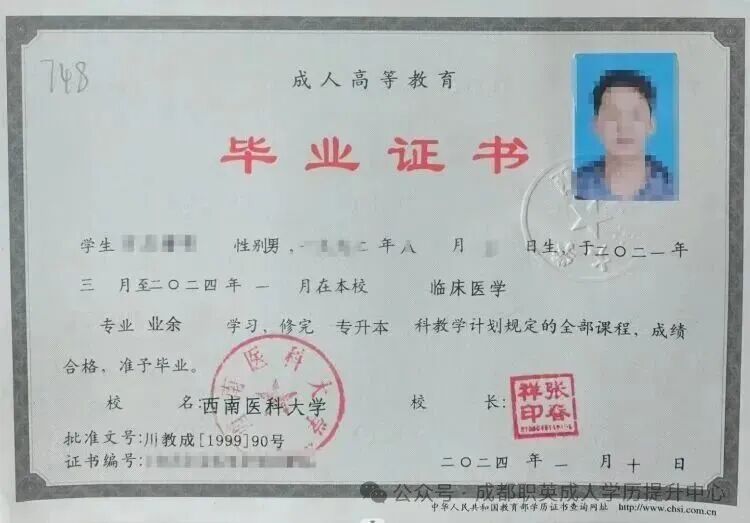 748
成人高等教育
毕业证书
学生 性别男, 年八月 日生,于二〇二一年
三月至二〇二四年一月在本校 临床医学
专业 业余 学习,修完 专升本 科教学计划规定的全部课程,成绩
合格,准予毕业。
校 名:西南医科大学 校 长:
张春祥印
批准文号:川教成[1999]90号
证书编号:
二〇二四年一月十日
公众号·成都职英成人学历提升中心
中华人民共和国教育部学历证书查询网址 http://www.chsi.com.cn